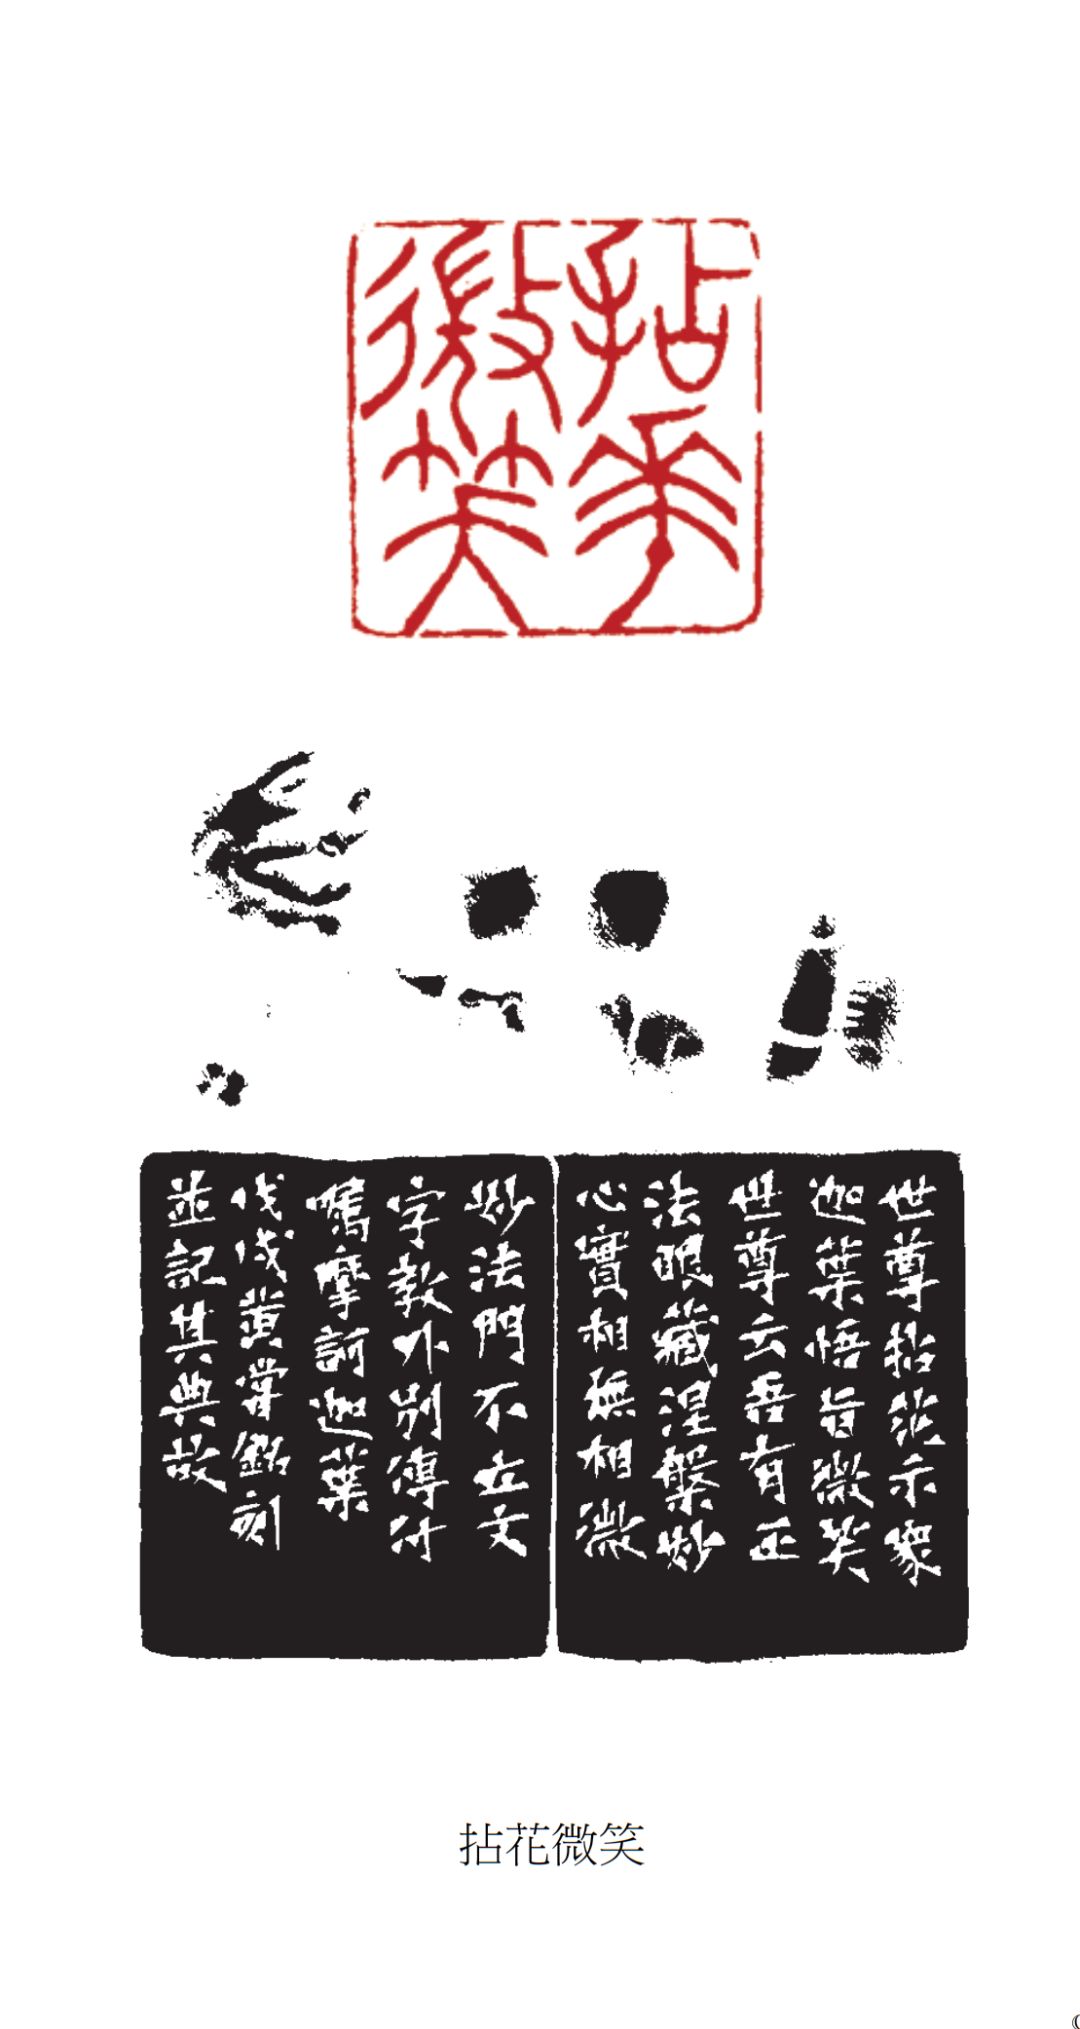 拈華
微笑
世尊拈花示眾
迦葉悟旨微笑
世尊云吾有正
法眼藏涅槃妙
心實相無相微
妙法門不立文
字教外別傳付
囑摩訶迦葉
戊戌黃嘗銘刻
並記其典故
拈花微笑